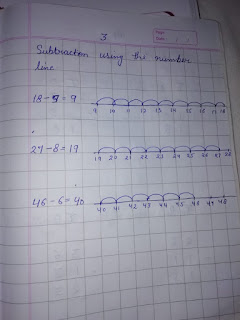 3
Page:
Date:
Subtraction using the number
line
18-9=9
9 10 11 12 13 14 15 16 17 18
27-8=19
19 20 21 22 23 24 25 26 27 28
46-6=40
40 41 42 43 44 45 46 47 48